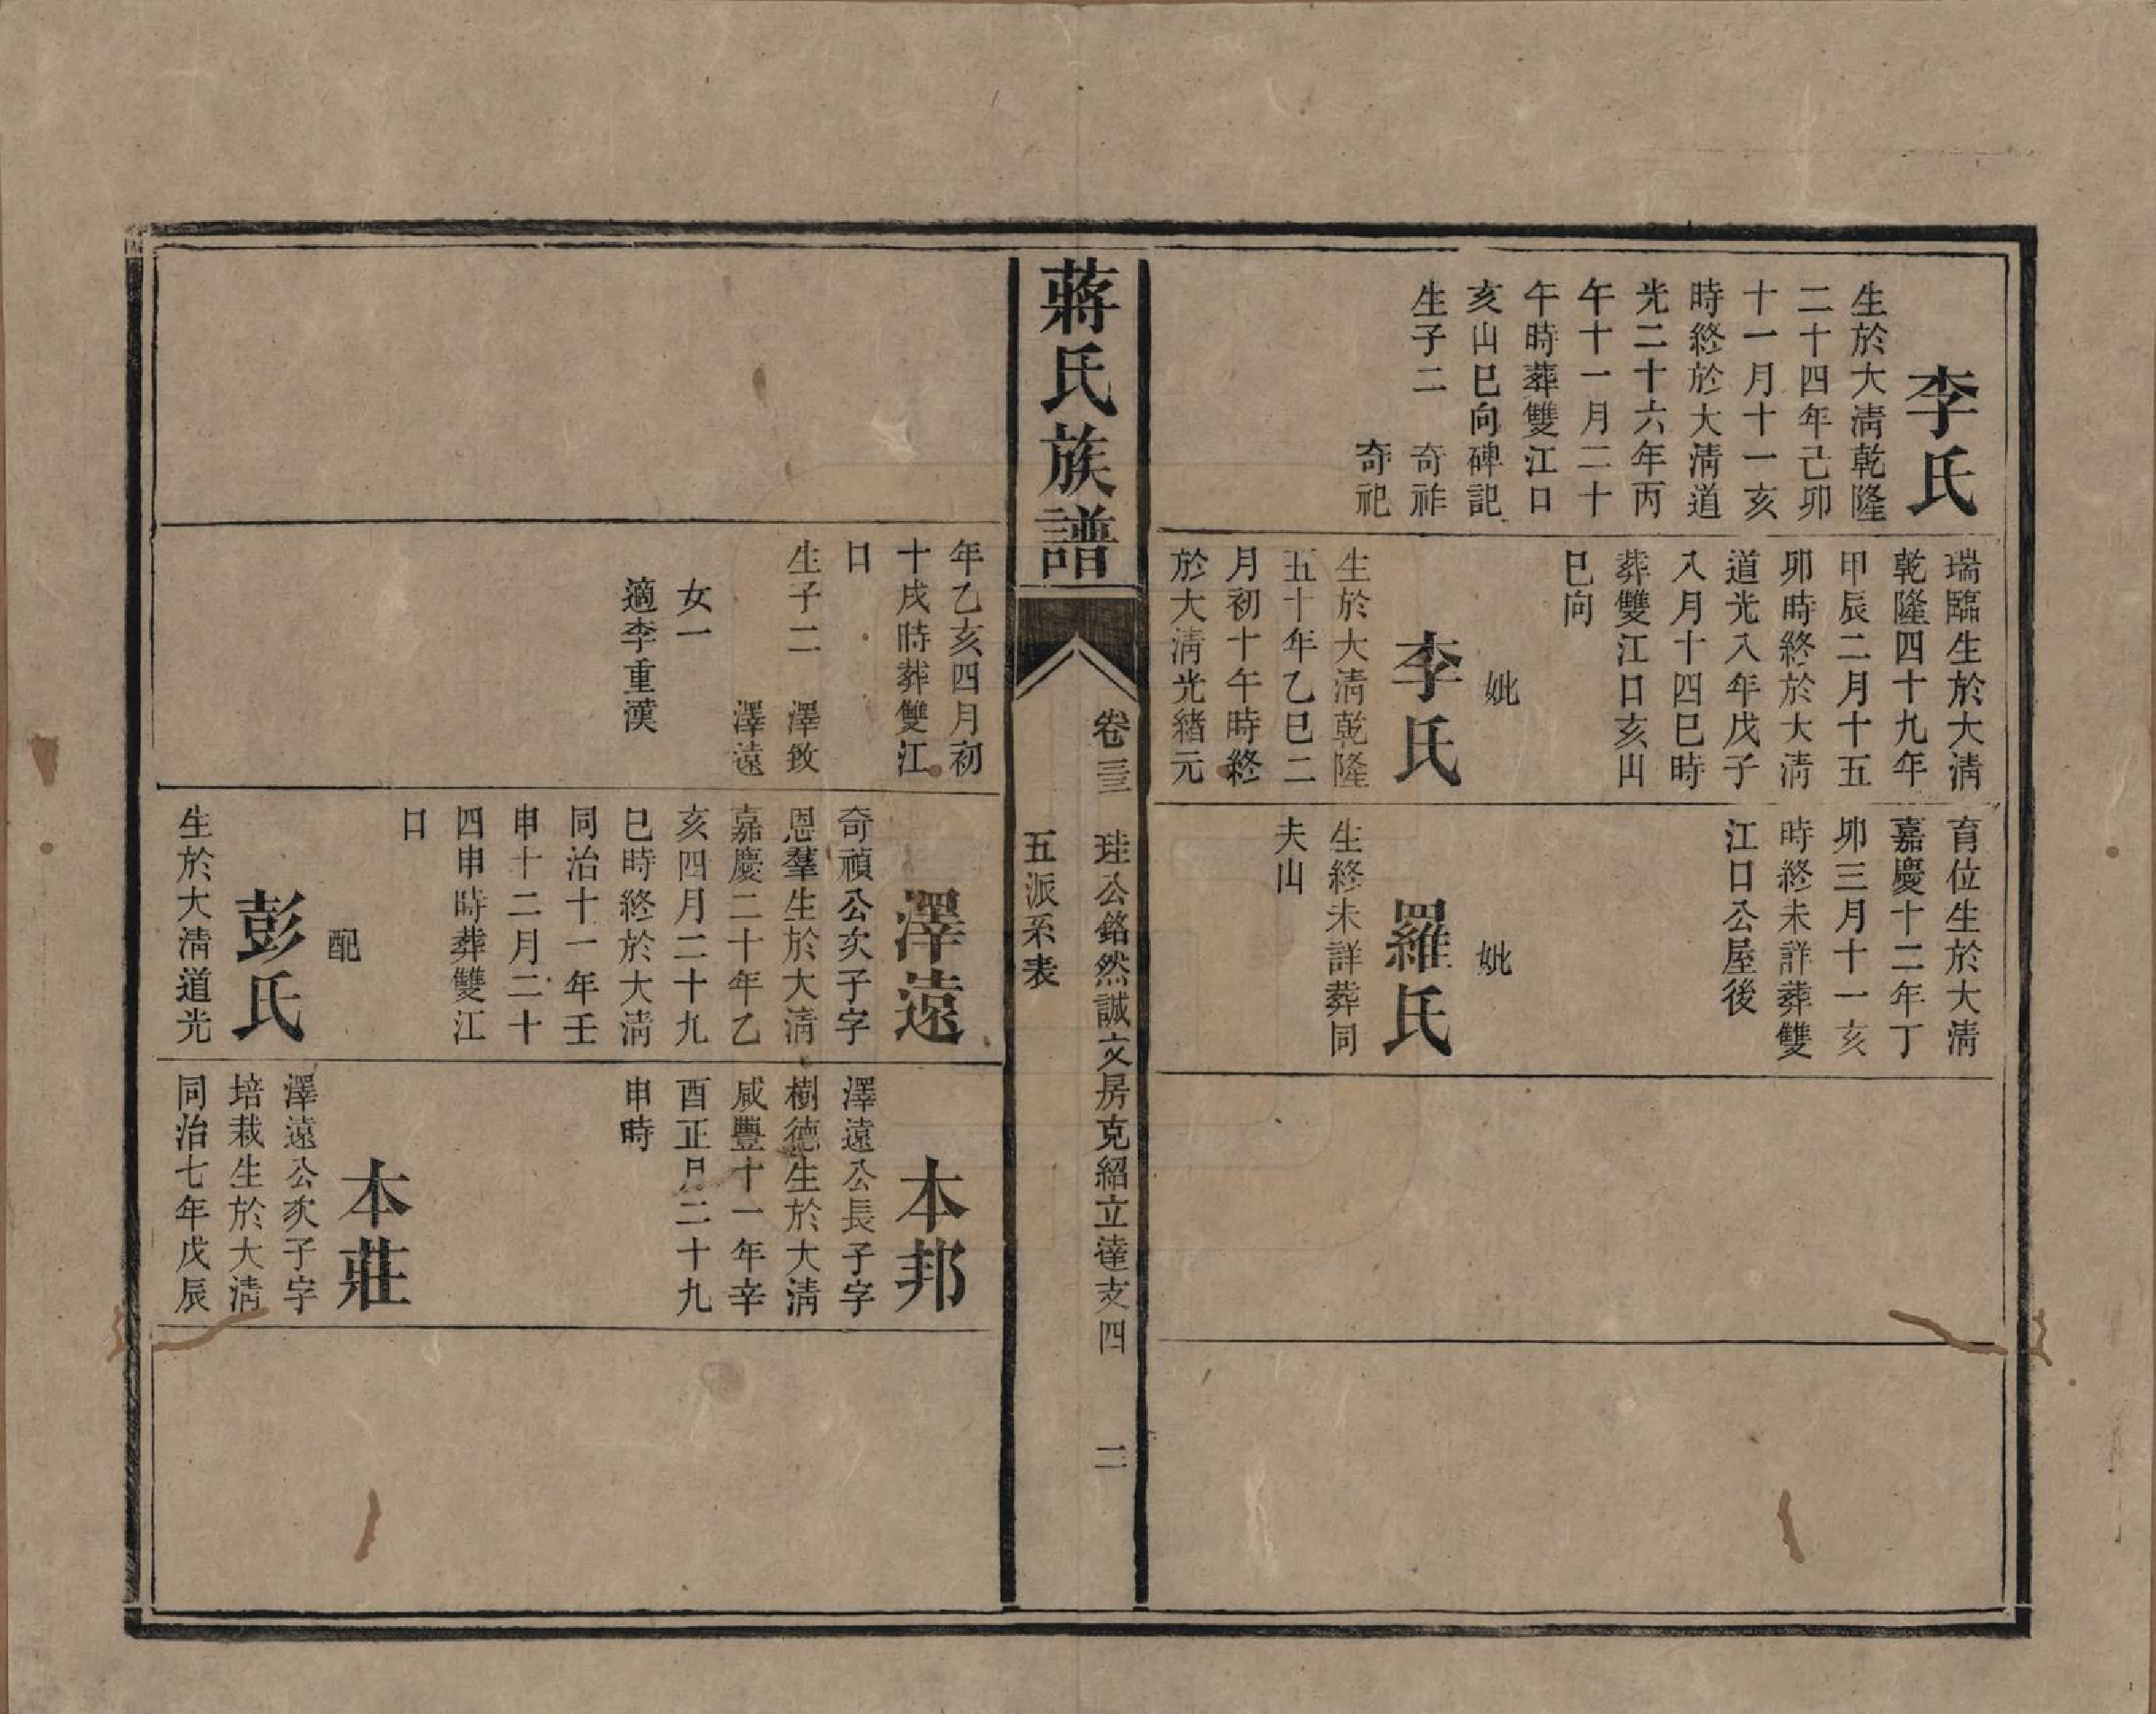 李氏
生於大淸乾隆
二十四年己卯
十一月十一亥
時終於大淸道
光二十六年丙
午十一月二十
午時葬雙江口
亥山巳向碑記
生子二 奇祚
奇祀
瑞臨生於大淸
乾隆四十九年
甲辰二月十五
卯時終於大淸
道光八年戊子
八月十四巳時
葬雙江口亥山
巳向
妣
李氏
生於大淸乾隆
五十年乙巳二
月初十午時終
於大淸光緖元
育位生於大淸
嘉慶十二年丁
卯三月十一亥
時終未詳葬雙
江口公屋後
妣
羅氏
生終未詳葬同
夫山
蔣氏族譜
卷三三 珪公銘然誠文房克紹立達支四 二
五派系表
年乙亥四月初
十戌時葬雙江
口
生子二 澤致
澤遠
女一
適李重漢
澤遠
奇禎公次子字
恩羣生於大淸
嘉慶二十年乙
亥四月二十九
巳時終於大淸
同治十一年壬
申十二月二十
四申時葬雙江
口
配
彭氏
生於大淸道光
本邦
澤遠公長子字
樹德生於大淸
咸豐十一年辛
酉正月二十九
申時
本莊
澤遠公次子字
培栽生於大淸
同治七年戊辰